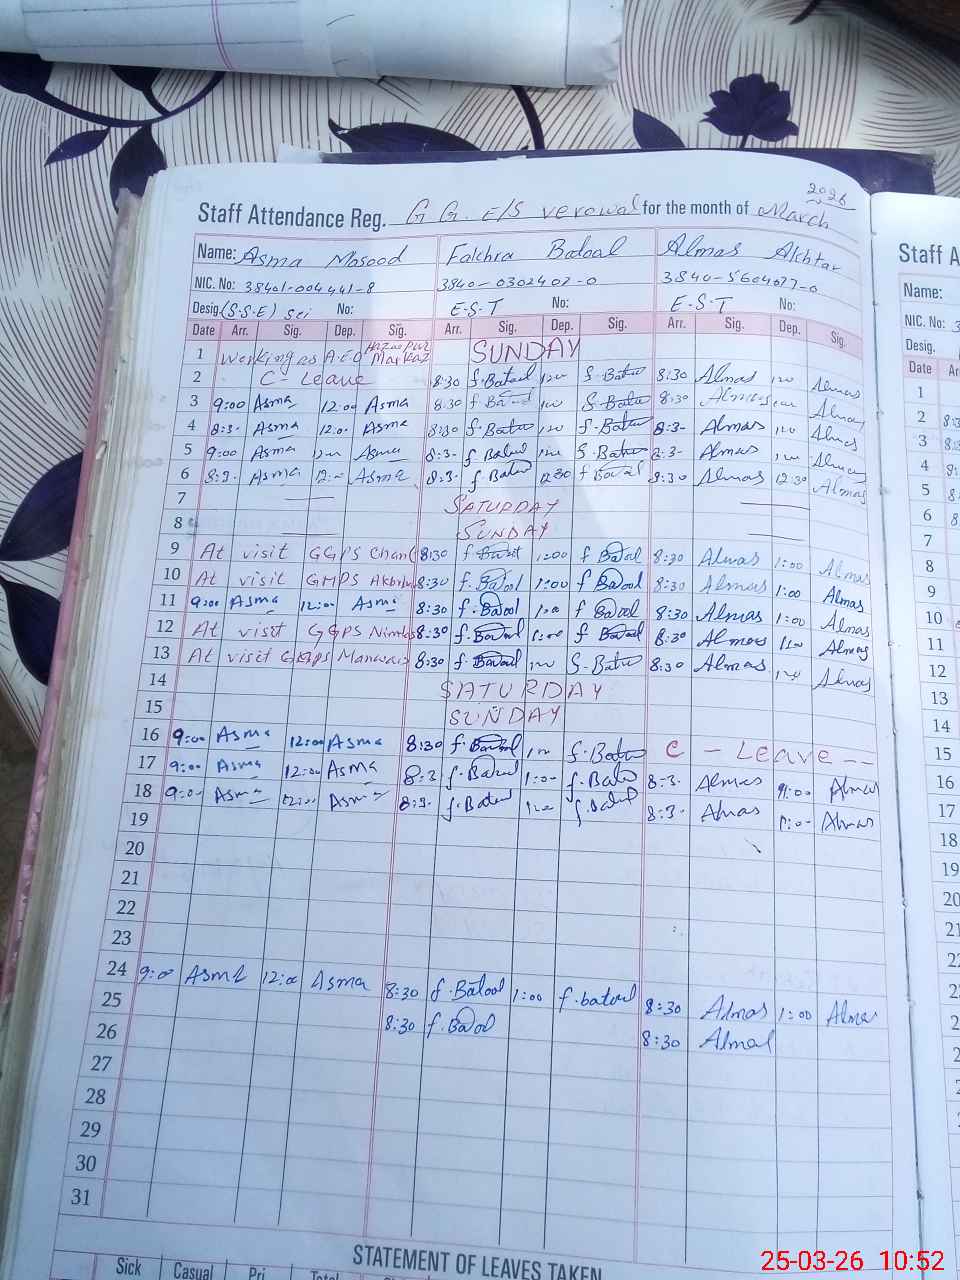 2026
Staff Attendance Reg. G G. E/S verowal for the month of March
Name: Asma Masood Fakhra Batool Almas Akhtar
NIC. No: 38401-004441-8 3840-0302402-0 3840-5604077-0
Desig. (S.S.E) Sci No: E.S.T No: E.S.T No:
Date Arr. Sig. Dep. Sig. Arr. Sig. Dep. Sig. Arr. Sig. Dep. Sig.
1 Working as A.E.O Markaz SUNDAY
2 C - Leave 8:30 f.Batool 1:00 f.Batool 8:30 Almas 1:00 Almas
3 9:00 Asma 12:00 Asma 8:30 f.Batool 1:00 f.Batool 8:30 Almas 1:00 Almas
4 8:3- Asma 12:00 Asma 8:30 f.Batool 1:00 f.Batool 8:3- Almas 1:00 Almas
5 9:00 Asma Asma 8:3- f.Batool 1:00 f.Batool 8:3- Almas 1:00 Almas
6 8:3- Asma 12:- Asma 8:3- f.Batool 12:30 f.Batool 8:30 Almas 12:30 Almas
7 SATURDAY
8 SUNDAY
9 At visit GGPS 8:30 f.Batool 1:00 f.Batool 8:30 Almas 1:00 Almas
10 At visit GMPS 8:30 f.Batool 1:00 f.Batool 8:30 Almas 1:00 Almas
11 9:00 Asma 12:00 Asma 8:30 f.Batool 1:00 f.Batool 8:30 Almas 1:00 Almas
12 At visit GGPS 8:30 f.Batool 1:00 f.Batool 8:30 Almas 1:00 Almas
13 At visit 8:30 f.Batool 1:00 f.Batool 8:30 Almas 1:00 Almas
14 SATURDAY
15 SUNDAY
16 9:00 Asma 12:00 Asma 8:30 f.Batool 1:00 f.Batool C - Leave --
17 9:00 Asma 12:00 Asma 8:3 f.Batool 1:00 f.Batool 8:3- Almas 9:00 Almas
18 9:00 Asma 12:00 Asma 8:3- f.Batool 1:00 f.Batool 8:3- Almas 1:0- Almas
19
20
21
22
23
24 9:00 Asma 12:00 Asma 8:30 f.Batool 1:00 f.batool 8:30 Almas 1:00 Almas
25 8:30 f.Batool 8:30 Almas
26
27
28
29
30
31
STATEMENT OF LEAVES TAKEN
Sick Casual Pri. Total
Staff A
Name:
NIC. No: 3
Desig.
Date Ar
1
2 8:3
3 8:3
4 8
5 8
6 8
7
8
9
10
11
12
13
14
15
16
17
18
19
20
25-03-26 10:52